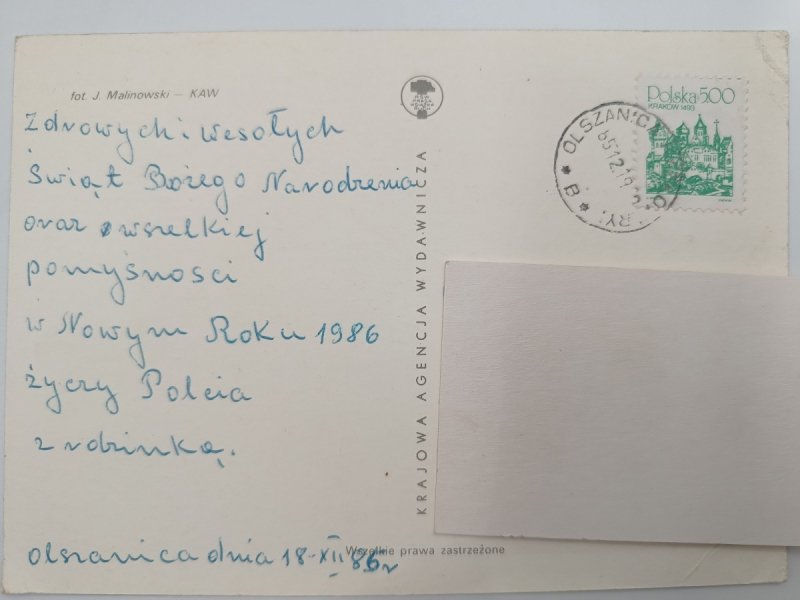 fot. J. Malinowski — KAW
Zdrowych i wesołych
Świąt Bożego Narodzenia
oraz wszelkiej
pomyśności
w Nowym Roku 1986
życzy Polcia
z rodzinką.
Olszanica dnia 18-XII 86r
KRAJOWA AGENCJA WYDAWNICZA
Wszelkie prawa zastrzeżone
Polska 500
KRAKÓW 1493
OLSZANICA
85.12.19
B